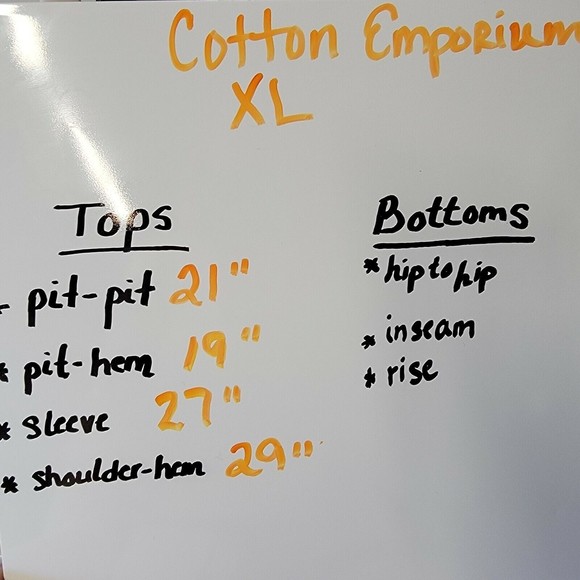 Cotton Emporium
XL
Tops
- pit-pit 21"
* pit-hem 19"
* sleeve 27"
* shoulder-hem 29"
Bottoms
* hip to hip
* inseam
* rise